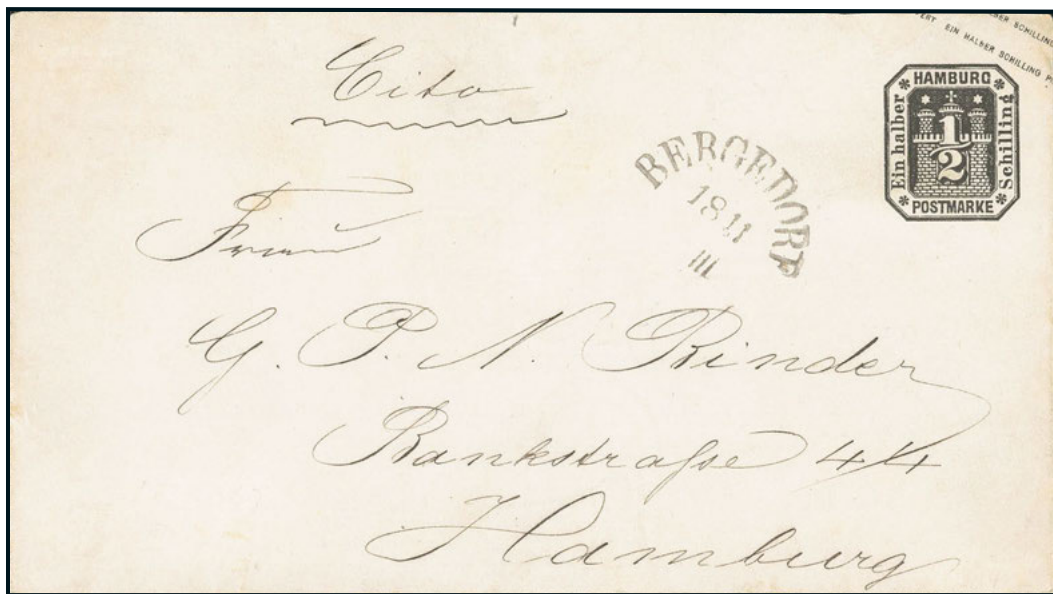 Cito
BER SCHILLING
VERT EIN HALBER SCHILLING PO
HAMBURG
Ein halber
1/2
Schilling
POSTMARKE
BERGEDORF
18 11
III
Frau
G. P. N. Rinder
Bankstraße 44
Hamburg